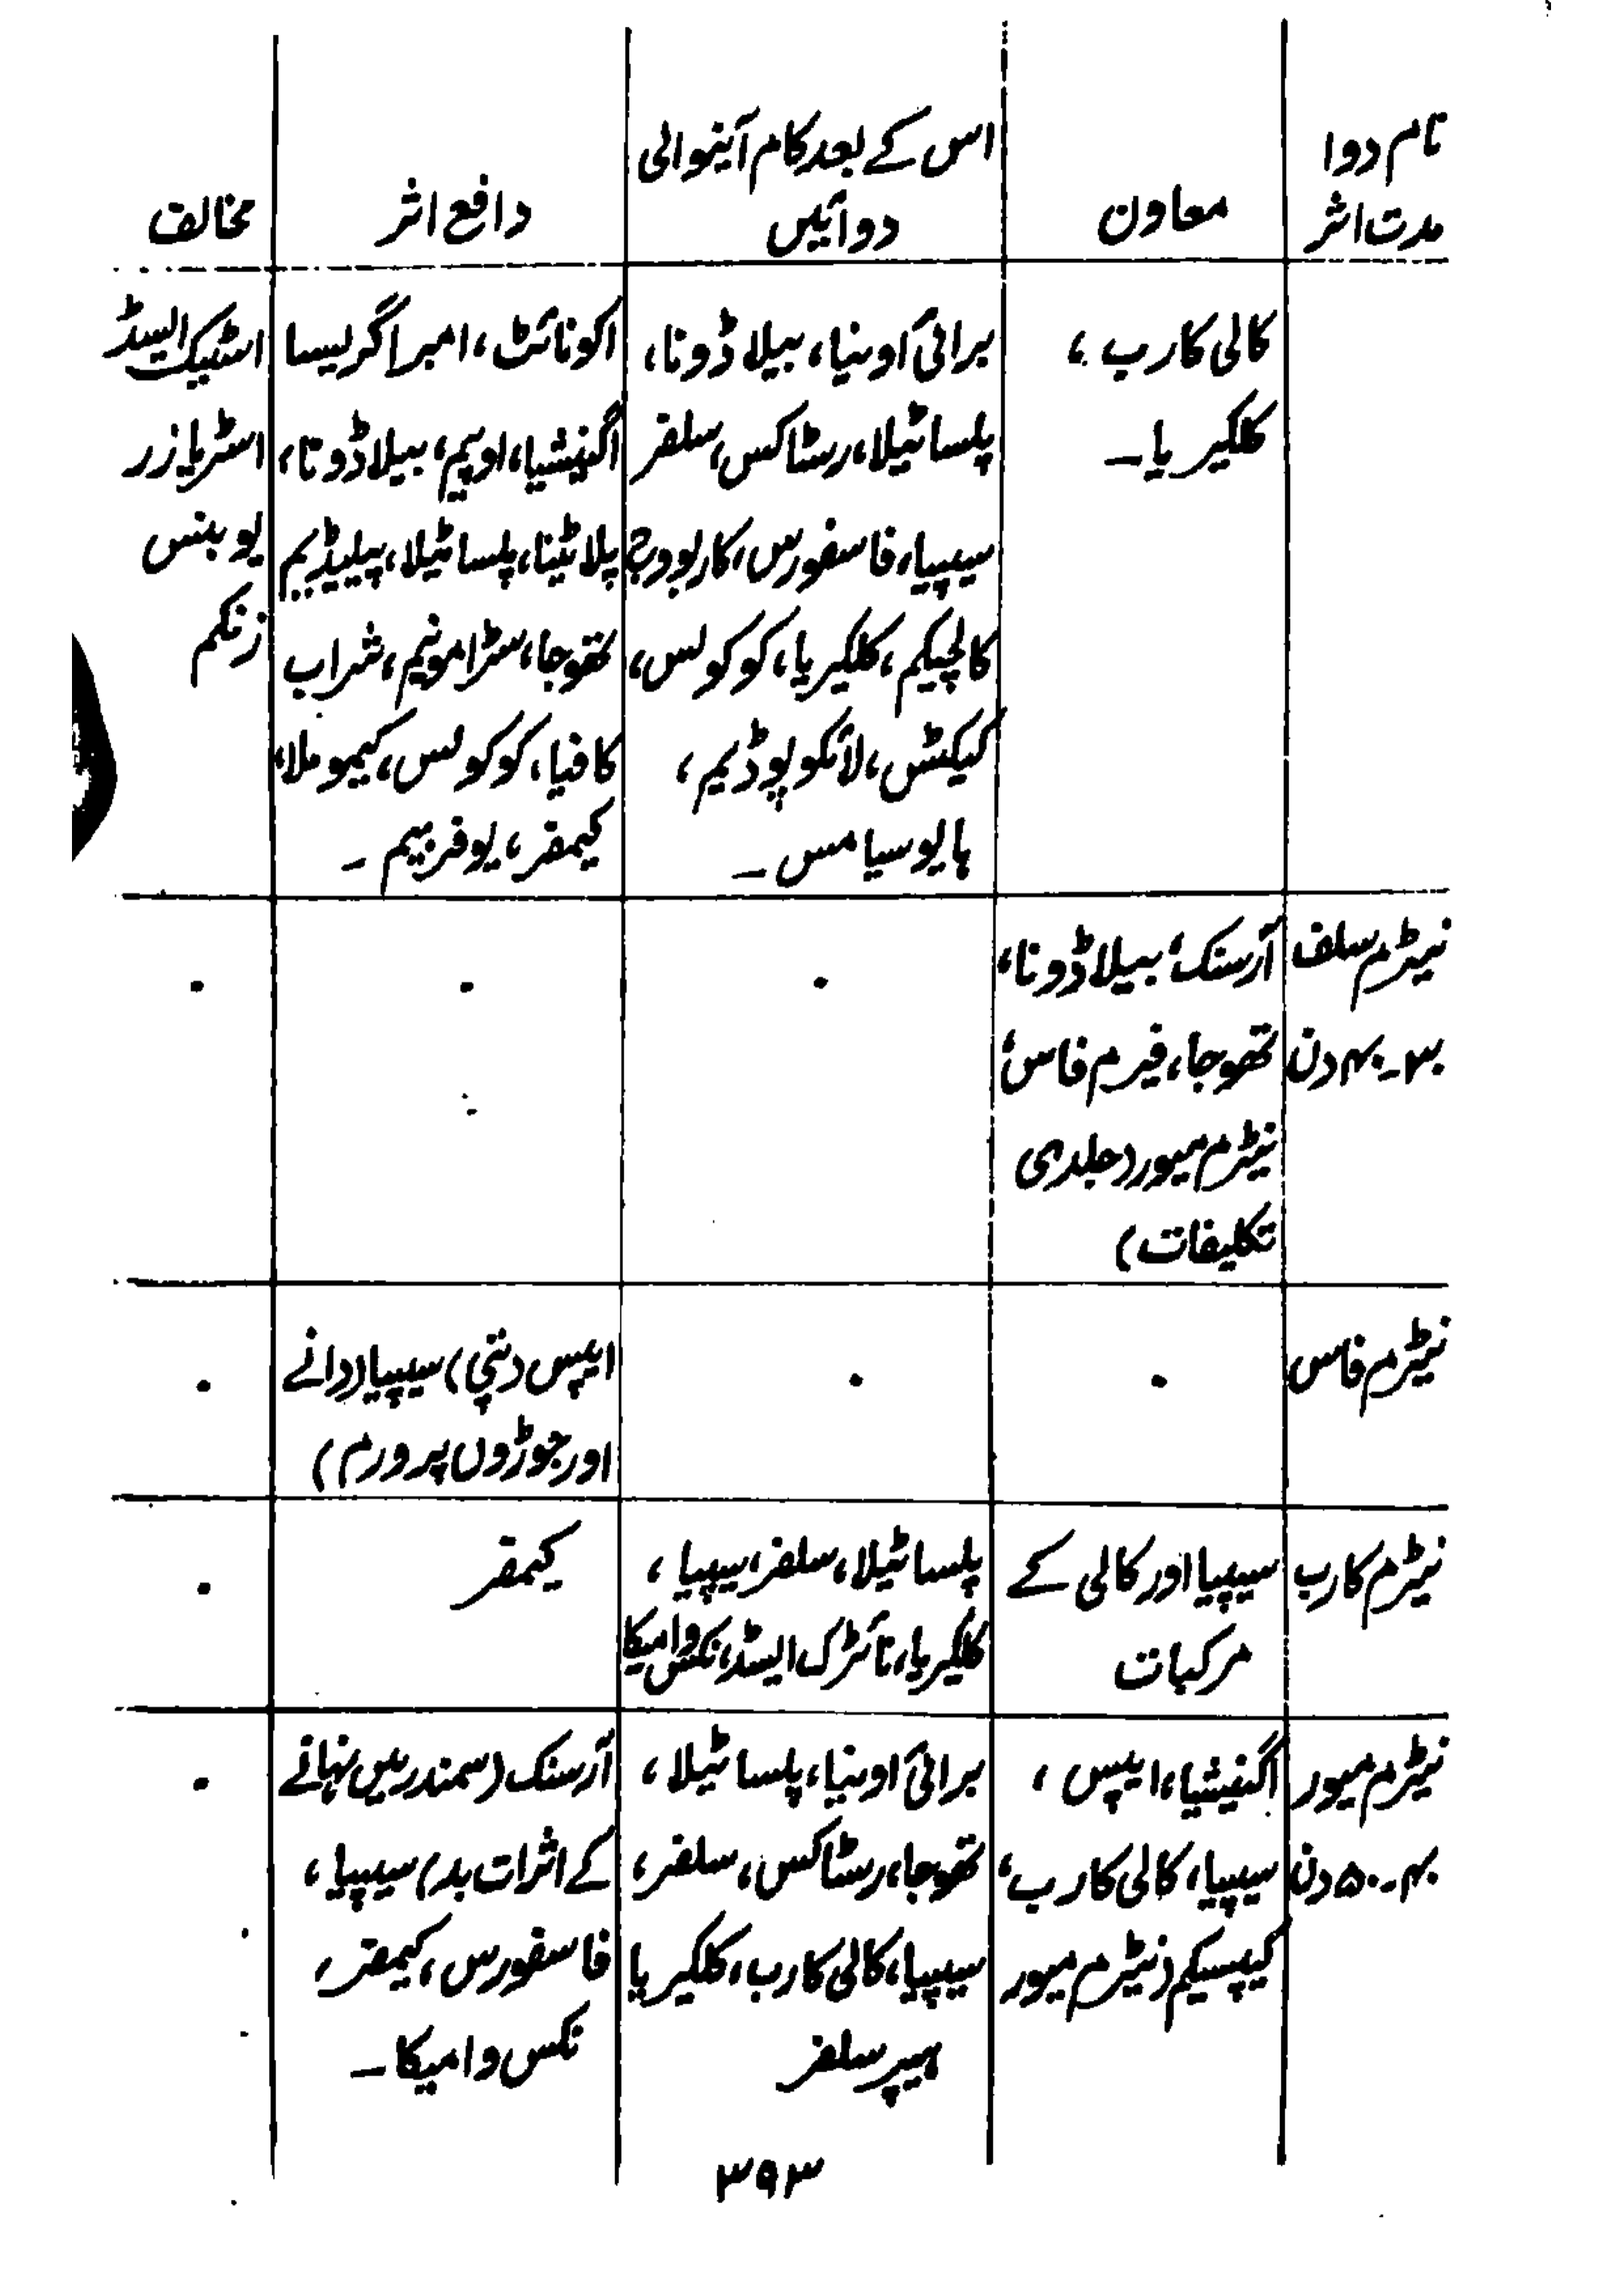 نام دوا
مدت اثر
معاون
اس کے بعد کام آنیوالی
دوائیں
دافع اثر
مخالف
کالی کارب ،
کلکیریا۔
برائی اونیا، بیلا ڈونا،
پلساٹیلا، رسٹاکس، سلفر
سیپیا، فاسفورس، کاربوویج
کالچیکم، کلکیریا، کوکولس،
کیکٹس، لائکوپوڈیم،
ہایوسیامس۔
اکونائٹ، امبرا گریسا
اگنیشیا، اوپیم، بیلاڈونا،
پلاٹینا، پلساٹیلا، پیلیڈیم
تھوجا، سٹرامونیم، شراب
کافیا، کوکولس، کیموملا،
کیمفر، یوفربیم۔
اسٹیک ایسڈ
اسٹریاز ر
یو بنس
زنکم
نیٹرم سلف
۳۰۔۴۰ دن
آرسنک، بیلاڈونا،
تھوجا، فیرم فاس،
نیٹرم میور (جلدی
تکلیفات)
۰
۰
۰
نیٹرم فاس
۰
۰
ایپس (پتی) سیپیا (دانے
اور جوڑوں پر ورم)
۰
نیٹرم کارب
سیپیا اور کالی کے
مرکبات
پلساٹیلا، سلفر، سیپیا،
کلکیریا، نائٹرک ایسڈ، نکس وامیکا
کیمفر
۰
نیٹرم میور
۴۰۔۵۰ دن
اگنیشیا، ایپس،
سیپیا، کالی کارب،
کیپسیکم (نیٹرم میور
برائی اونیا، پلساٹیلا،
تھوجا، رسٹاکس، سلفر،
سیپیا، کالی کارب، کلکیریا
ہیپر سلفر
آرسنک (سمندر میں نہانے
کے اثرات بد) سیپیا،
فاسفورس، کیمفر،
نکس وامیکا۔
۰
۳۹۳